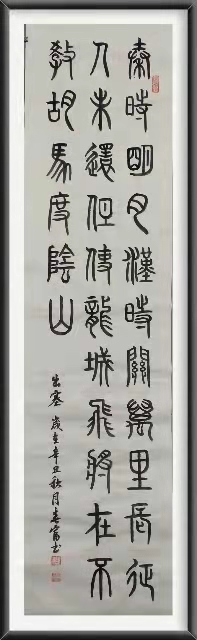 秦時明月漢時關萬里長征
人未還但使龍城飛將在不
教胡馬度陰山
出塞 歲在辛丑秋月